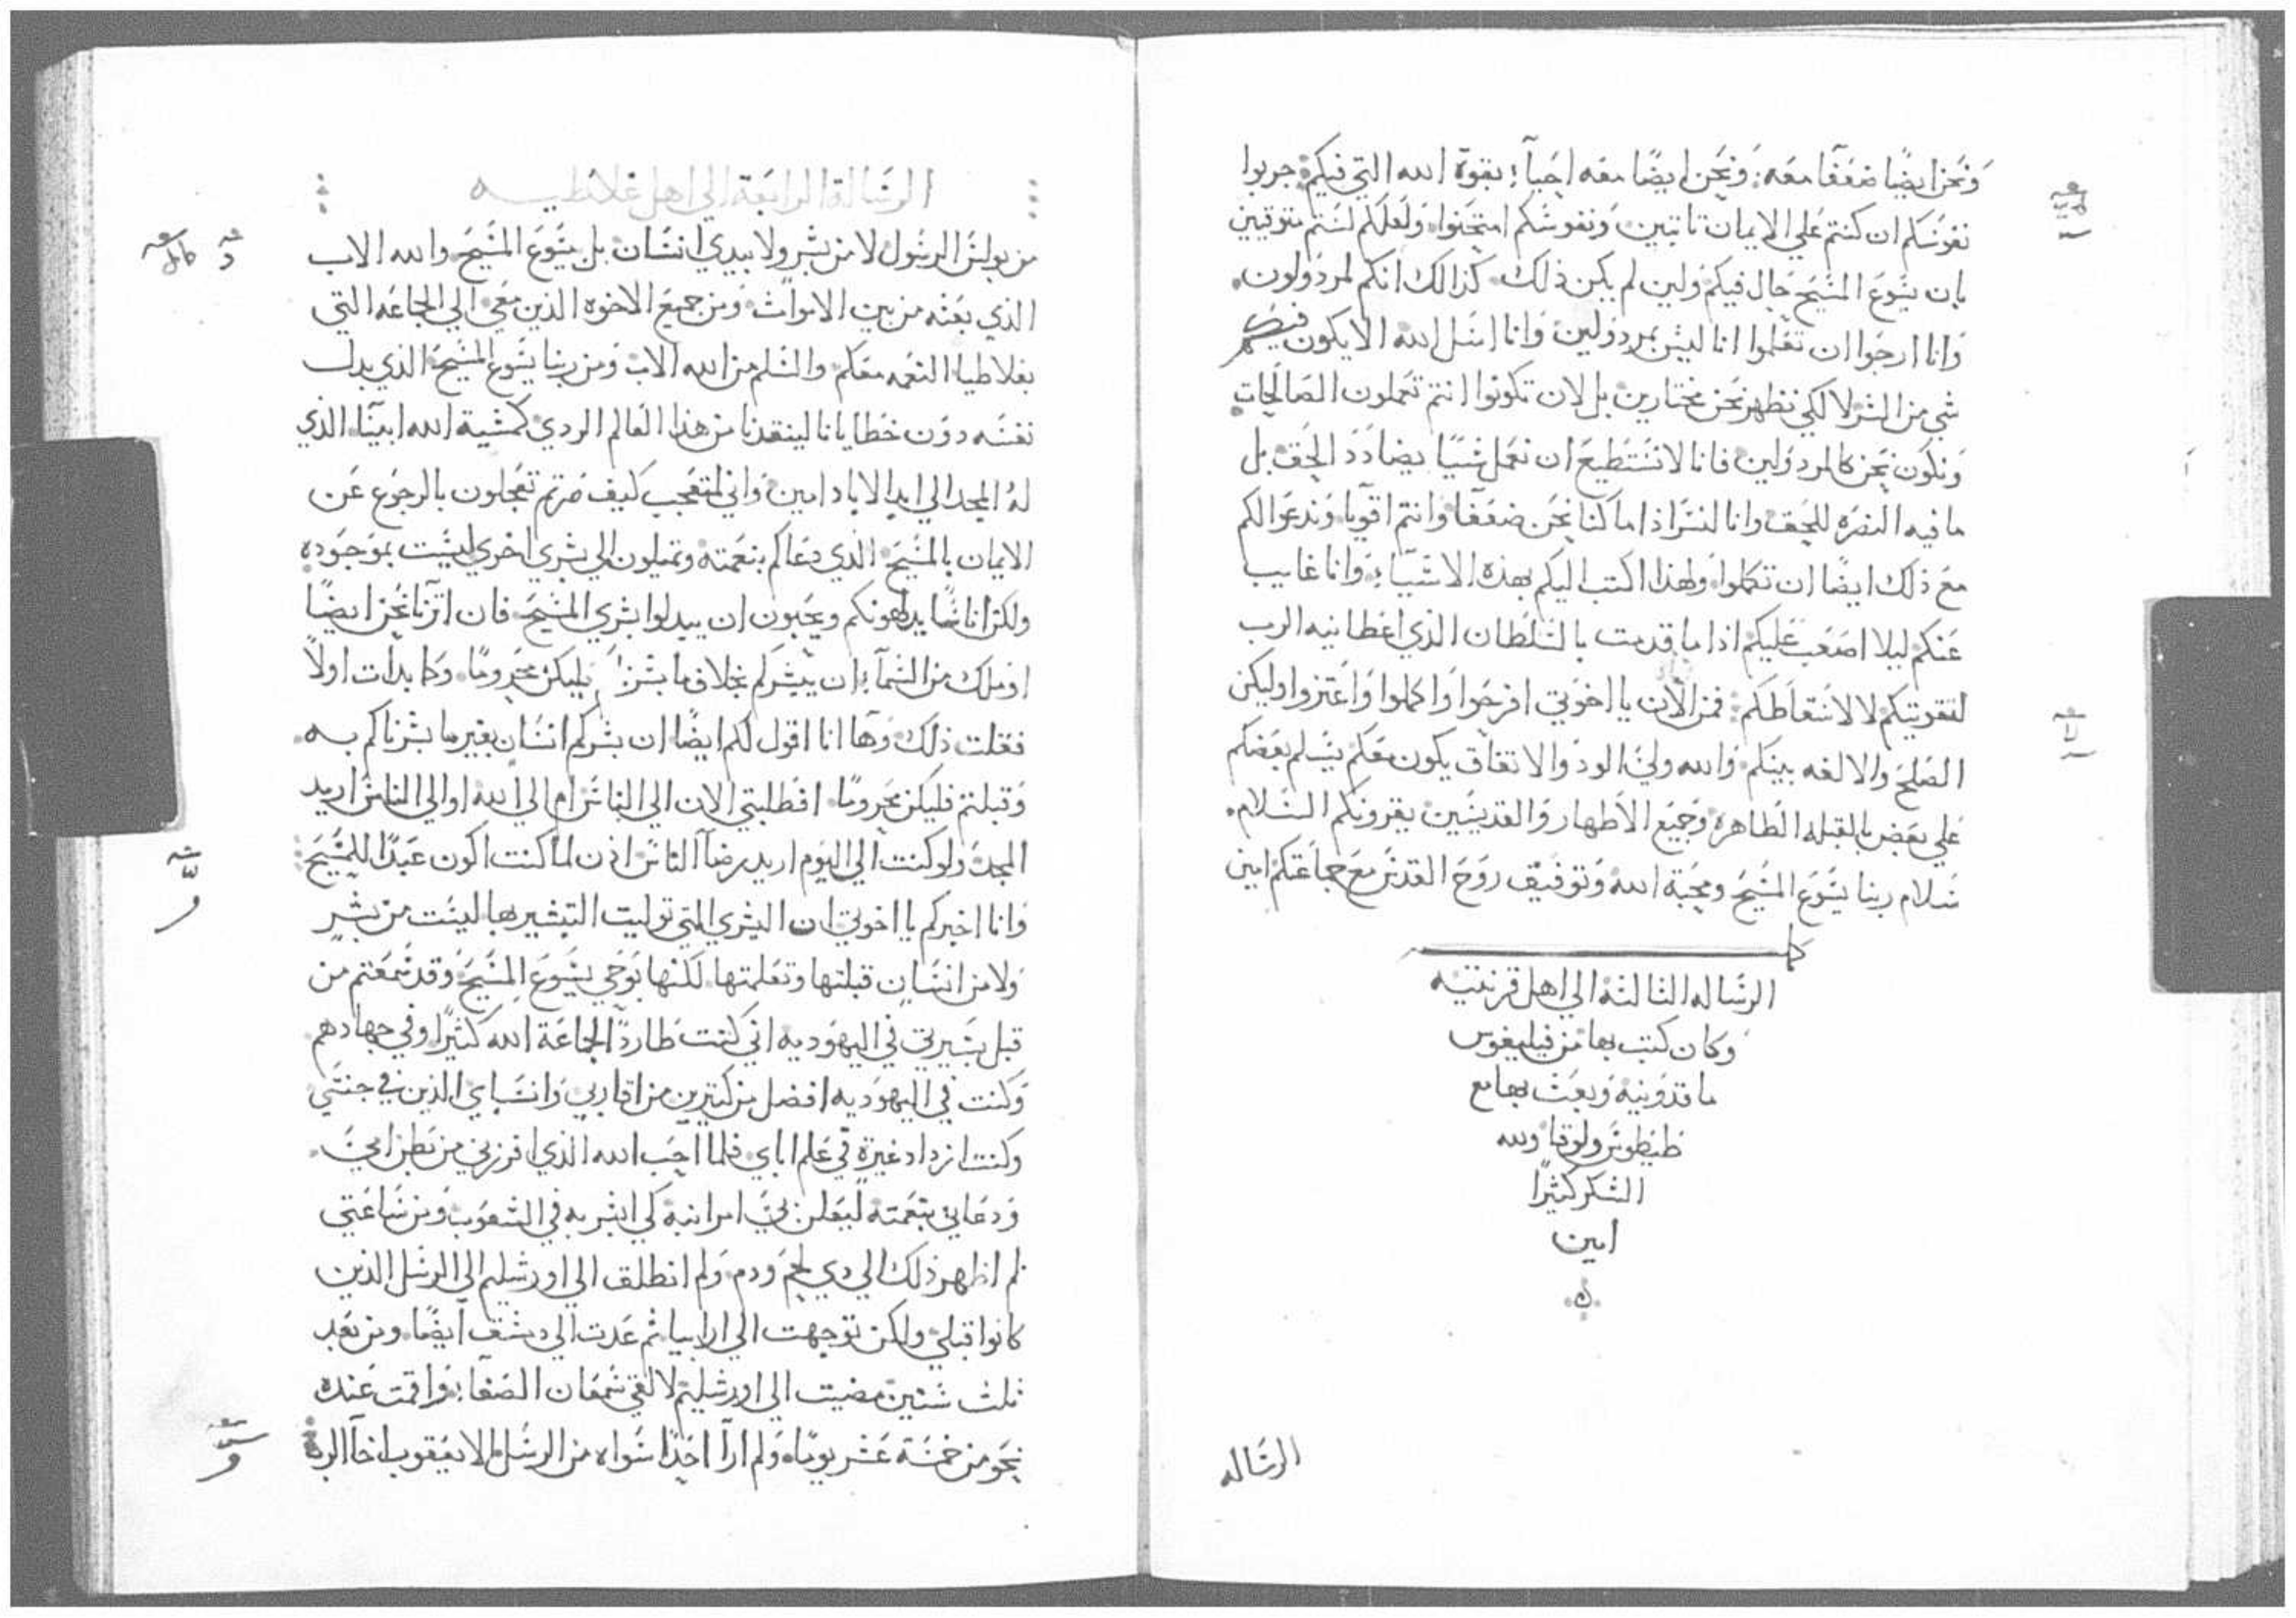 ونحن ايضا ضعفا معه: ونحن ايضا معه احيآ: بقوة الله التي فيكم جربوا
نفوسكم ان كنتم علي الايمان تابتين ونفوسكم امتحنوا ولعلكم لستم متوقنين
بان يسوع المسيح حال فيكم ولين لم يكن ذلك كذالك انكم لمردولون
وانا ارجوا ان تعلموا انا ليس بمردولين وانا اسل الله الا يكون فيكم
شي من الشر لا لكي نظهر نحن مختارين بل لان تكونوا انتم تعملون الصالحات
ونكون نحن كالمردولين فانا لا نستطيع ان نعمل شيا يضادد الحق بل
ما فيه النصره للحق وانا لنسر اذا ما كنا نحن ضعفا وانتم اقويا وندعوا لكم
مع ذلك ايضا ان تكملوا ولهذا اكتب اليكم بهذه الاشيآ: وانا غايب
عنكم ليلا اصعب عليكم اذا ما قدمت بالسلطان الذي اعطانيه الرب
لتقويتكم لا لاسقاطكم: فمن الآن يا اخوتي افرحوا واكملوا واعتزوا وليكن
الصلح والالفه بينكم والله ولي الود والاتفاق يكون معكم يسلم بعضكم
علي بعض بالقبله الطاهره وجميع الاطهار والقديسين يقرونكم السلام
سلام ربنا يسوع المسيح ومحبة الله وتوفيق روح القدس مع جماعتكم امين
الرساله التالته الي اهل قرنتيه
وكان كتب بها من فيليفوس
ماقدونيه وبعث بها مع
طيطوس ولوقا ولله
الشكر كثيرا
امين
الرساله
الرسالة الرابعة الي اهل غلاطيه
من بولس الرسول لا من بشر ولا بيدي انسان بل بيسوع المسيح والله الاب
الذي بعثه من بين الاموات ومن جميع الاخوه الذين معي الي الجماعه التي
بغلاطيا النعمه معكم والسلم من الله الاب ومن ربنا يسوع المسيح الذي بدل
نفسه دون خطايانا لينقذنا من هذا العالم الردي كمشية الله ابينا الذي
له المجد الي ابد الاباد امين واني لمتعجب كيف صرتم تعجلون بالرجوع عن
الايمان بالمسيح الذي دعاكم بنعمته وتميلون الي بشري اخري ليست بموجوده
ولكن اناسا يدلهونكم ويحبون ان يبدلوا بشري المسيح فان اثرنا نحن ايضا
او ملك من السمآ: ان يبشركم بخلاف ما بشرنا فليكن محروما وكما بدات اولا
فقلت ذلك وها انا اقول لكم ايضا ان بشركم انسان بغير ما بشرناكم به
وقبلتم فليكن محروما افطلبتي الان الي الناس ام الي الله او الي الناس اريد
المجد ولو كنت الي اليوم اريد رضآ الناس اذن لما كنت اكون عبدا للمسيح
وانا اخبركم يا اخوتي ان البشري التي توليت التبشير بها ليست من بشر
ولا من انسان قبلتها وتعلمتها لكنها بوحي يسوع المسيح وقد سمعتم من
قبل بسيرتي في اليهوديه اني كنت طاردا لجماعة الله كثيرا وفي جهادهم
وكنت في اليهوديه افضل من كتيرين من اقاربي وانسباي الذين في جنسي
وكنت ازداد غيرة في علم اباي فلما احب الله الذي افرزني من بطن امي
ودعاني بنعمته ليعلن بي امر ابنه كي ابشر به في الشعوب ومن ساعتي
لم اظهر ذلك الي دي لحم ودم ولم انطلق الي اورشليم الي الرسل الذين
كانوا قبلي ولكن توجهت الي ارابيا ثم عدت الي دمشق ايضا ومن بعد
ثلث سنين مضيت الي اورشليم لالقي شمعان الصفا: واقمت عنده
نحو من خمسة عشر يوما ولم ارا احدا سواه من الرسل الا يعقوب اخآ الرب